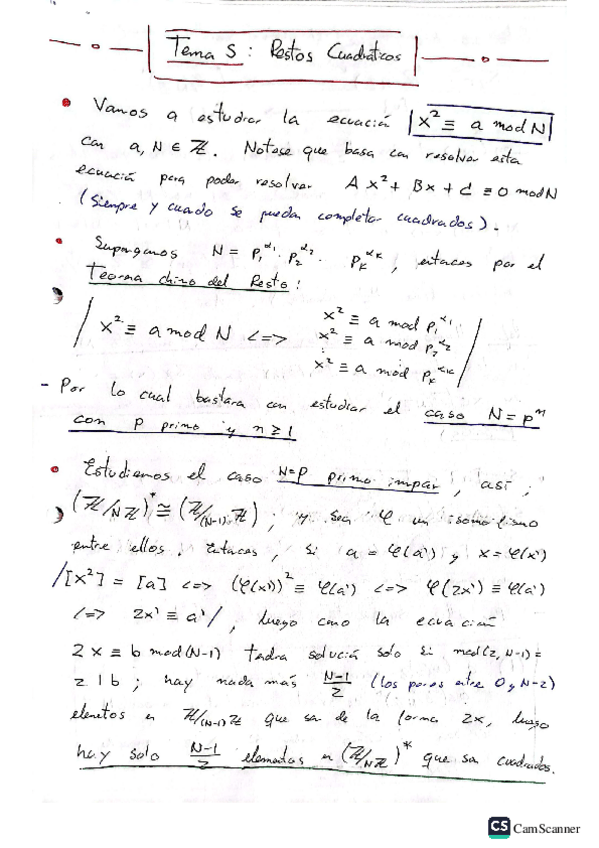 Tema 5: Restos Cuadráticos
• Vamos a estudiar la ecuación |x² ≡ a mod N|
con a, N ∈ ℤ. Notese que basa con resolver esta
ecuación para poder resolver Ax² + Bx + C ≡ 0 mod N
(Siempre y cuado se puedan completar cuadrados).
• Supongamos N = p₁^α₁ · p₂^α₂ · pₖ^αₖ, entoces por el
Teorema chino del Resto:
x² ≡ a mod p₁^α₁
x² ≡ a mod N <=> x² ≡ a mod p₂^α₂
x² ≡ a mod pₖ^αₖ
- Por lo cual bastara con estudiar el caso N = pⁿ
con p primo y n ≥ 1
• Estudiemos el caso N=p primo impar, así;
(ℤ/Nℤ)* ≅ (ℤ/(N-1)ℤ); y sea φ un isomorfismo
entre ellos. Entoces, si a = φ(a') y x = φ(x')
/[x²] = [a] <=> (φ(x'))² ≡ φ(a') <=> φ(2x') ≡ φ(a')
<=> 2x' ≡ a'/, luego como la ecuación
2x ≡ b mod (N-1) tedra solució solo si mcd(2, N-1) =
2 | b; hay nada más N-1/2 (los pares entre 0 y N-2)
elemetos en ℤ/(N-1)ℤ que son de la forma 2x, luego
hay solo N-1/2 elementos en (ℤ/Nℤ)* que son cuadrados.
CS CamScanner